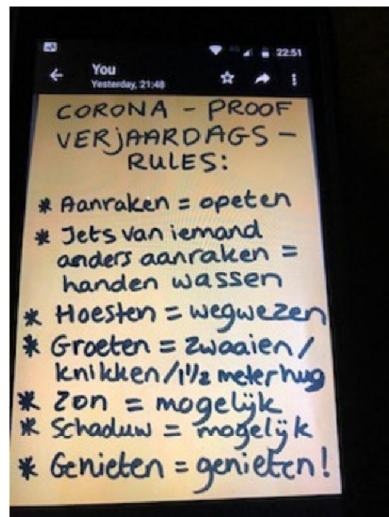 22:51
You
Yesterday, 21:48
CORONA - PROOF
VERJAARDAGS -
RULES:
* Aanraken = opeten
* Jets van iemand
anders aanraken =
handen wassen
* Hoesten = wegwezen
* Groeten = zwaaien /
knikken / 1 1/2 meter hug
* Zon = mogelijk
* Schaduw = mogelijk
* Genieten = genieten!